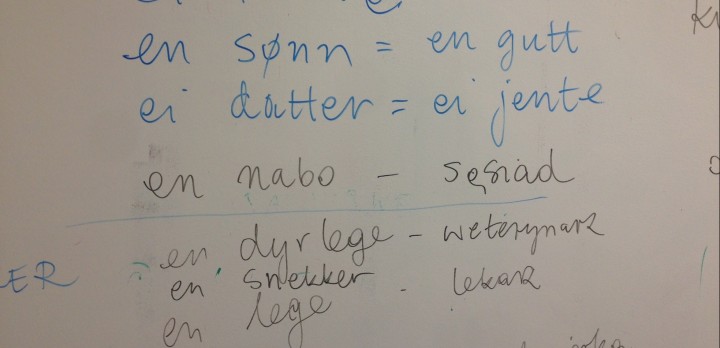 en sønn = en gutt
ei datter = ei jente
en nabo - sąsiad
en dyrlege - weterynarz
ER en snekker - lekarz
en lege